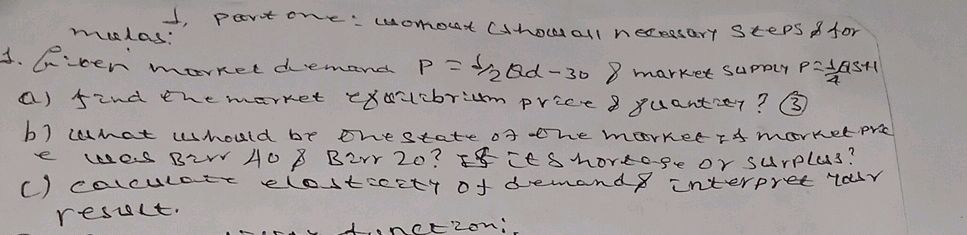 1, part one: workout (show all necessary steps & for
mulas:
1. Given market demand P = 1/2 Qd - 30 & market supply P = 1/4 QS + 1
a) find the market equilibrium price & quantity? ③
b) what whould be the state of the market if market pric
e was Birr 40 & Birr 20? Is it shortage or surplus?
c) calculate elasticity of demand & interpret your
result.
function: